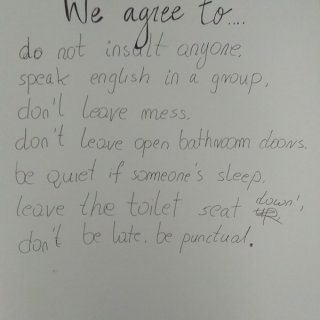 We agree to....
do not insult anyone.
speak english in a group.
don't leave mess.
don't leave open bathroom doors.
be quiet if someone's sleep.
leave the toilet seat up down!
don't be late. be punctual.